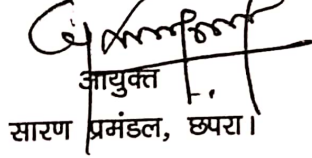 आयुक्त
सारण प्रमंडल, छपरा।